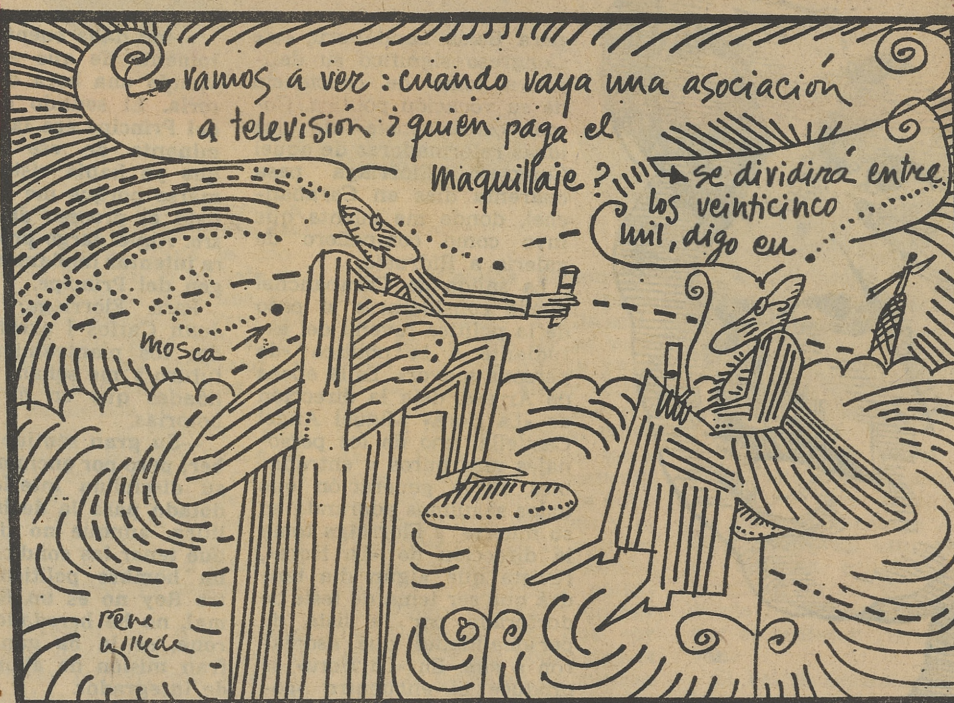 vamos a ver : cuando vaya una asociación
a televisión ? quien paga el
maquillaje ?
se dividirá entre
los veinticinco
mil, digo en
mosca